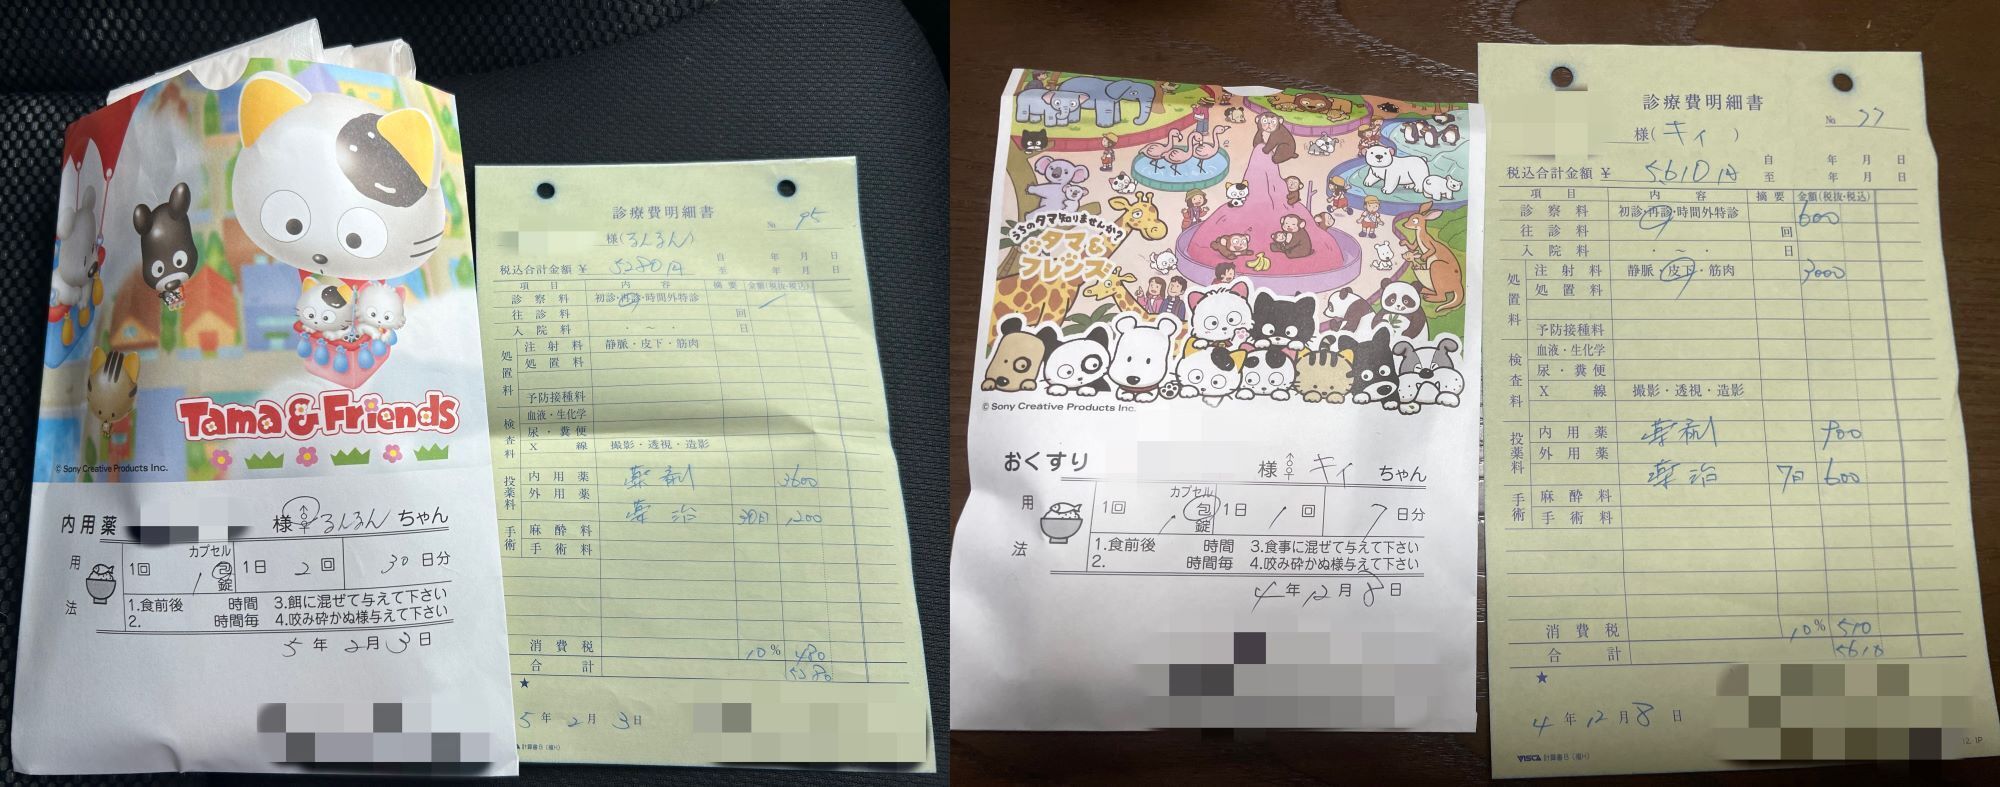 Tama & Friends
© Sony Creative Products Inc.
内用薬 様 ♂♀ るんるん ちゃん
用法
1回 1 カプセル 包 錠 1日 2 回 30 日分
1.食前後 時間 3.餌に混ぜて与えて下さい
2. 時間毎 4.咬み砕かぬ様与えて下さい
5 年 2 月 3 日
診療費明細書
№ 95
様(るんるん)
税込合計金額 ¥ 5280円 自 年 月 日
至 年 月 日
項目 内容 摘要 金額(税抜・税込)
診察料 初診・再診・時間外特診
往診料 回
入院料 ・ ~ ・ 日
処置料 注射料 静脈・皮下・筋肉
処置料
予防接種料
検査料 血液・生化学
尿・糞便
X線 撮影・透視・造影
投薬料 内用薬 薬剤 3600
外用薬
薬治 30日 1200
手術 麻酔料
手術料
消費税 10% 480
合計 5280
★
5 年 2 月 3 日
計算書B(横H)
うちのタマ知りませんか?
タマ&フレンズ
© Sony Creative Products Inc.
おくすり 様 ♂♀ キィ ちゃん
用法
1回 1 カプセル 包 錠 1日 1 回 7 日分
1.食前後 時間 3.食事に混ぜて与えて下さい
2. 時間毎 4.咬み砕かぬ様与えて下さい
4 年 12 月 8 日
診療費明細書
№ 77
様(キィ)
税込合計金額 ¥ 5610円 自 年 月 日
至 年 月 日
項目 内容 摘要 金額(税抜・税込)
診察料 初診・再診・時間外特診 600
往診料 回
入院料 ・ ~ ・ 日
処置料 注射料 静脈・皮下・筋肉 3000
処置料
予防接種料
検査料 血液・生化学
尿・糞便
X線 撮影・透視・造影
投薬料 内用薬 薬剤 900
外用薬
薬治 7日 600
手術 麻酔料
手術料
消費税 10% 510
合計 5610
★
4 年 12 月 8 日
VISCA 計算書B(横H)
12. 1P